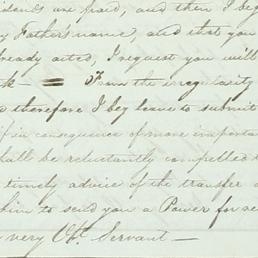 idends are paid, and then I beg
y Father's name, and that you
lready acted, I request you will
k — = From the irregularity
therefore I beg leave to submit
if in consequence of more importa
hall be reluctantly compelled
timely advice of the transfer
him to send you a Power for re
very Obt. Servant —